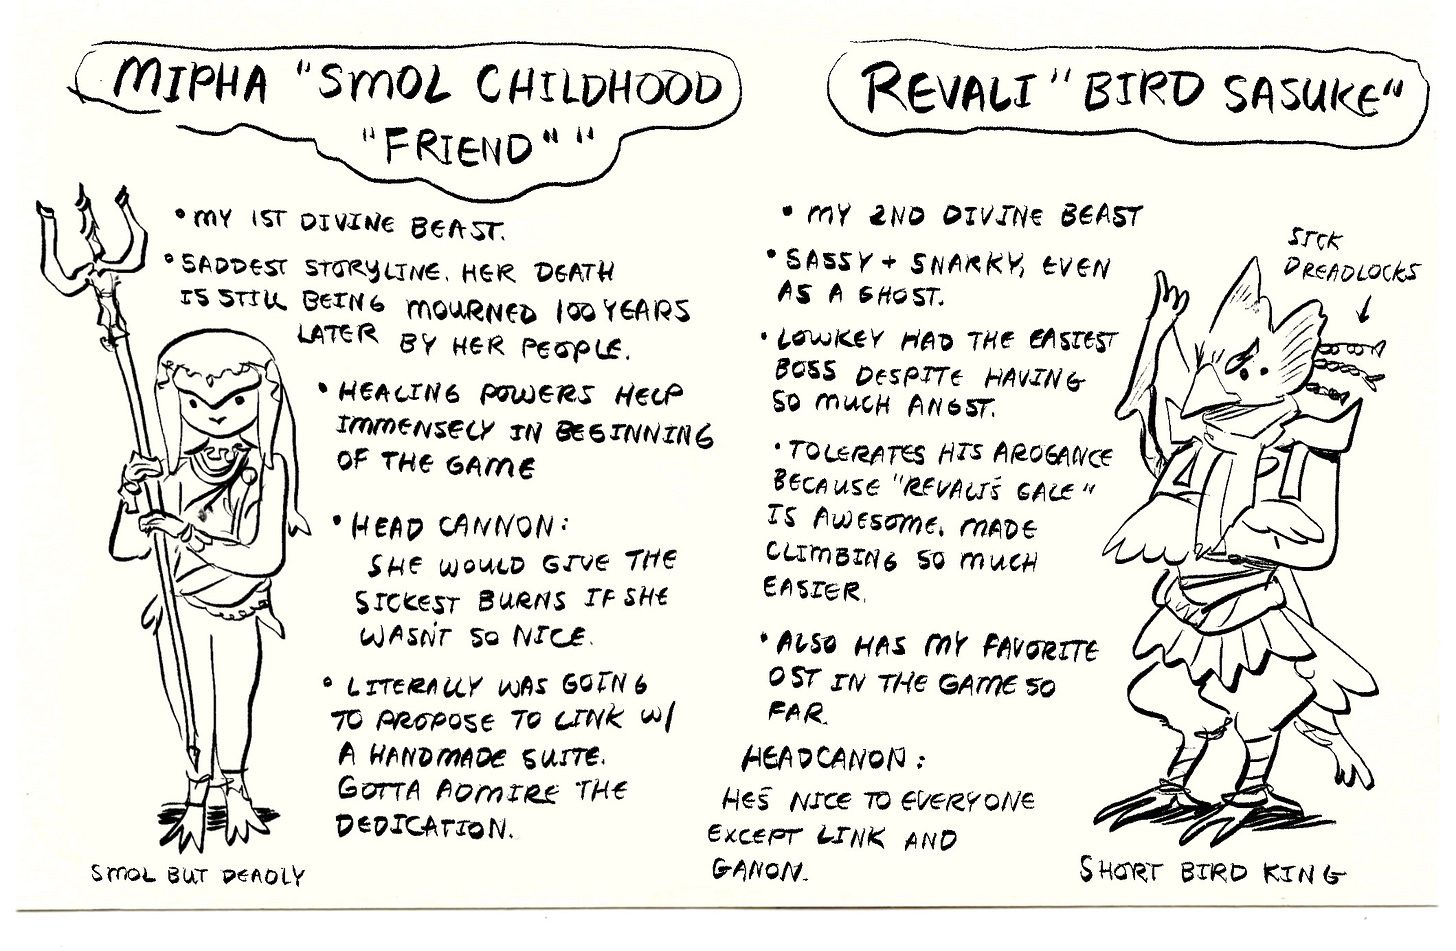 MIPHA "SMOL CHILDHOOD
"FRIEND" "
• MY 1ST DIVINE BEAST.
• SADDEST STORYLINE. HER DEATH
IS STILL BEING MOURNED 100 YEARS
LATER BY HER PEOPLE.
• HEALING POWERS HELP
IMMENSELY IN BEGINNING
OF THE GAME
• HEAD CANNON:
SHE WOULD GIVE THE
SICKEST BURNS IF SHE
WASN'T SO NICE.
• LITERALLY WAS GOING
TO PROPOSE TO LINK W/
A HANDMADE SUITE.
GOTTA ADMIRE THE
DEDICATION.
SMOL BUT DEADLY
REVALI "BIRD SASUKE"
• MY 2ND DIVINE BEAST
• SASSY + SNARKY, EVEN
AS A GHOST.
• LOWKEY HAD THE EASIEST
BOSS DESPITE HAVING
SO MUCH ANGST.
• TOLERATES HIS AROGANCE
BECAUSE "REVALI'S GALE"
IS AWESOME. MADE
CLIMBING SO MUCH
EASIER.
• ALSO HAS MY FAVORITE
OST IN THE GAME SO
FAR.
HEADCANON:
HE'S NICE TO EVERYONE
EXCEPT LINK AND
GANON.
SICK
DREADLOCKS
SHORT BIRD KING